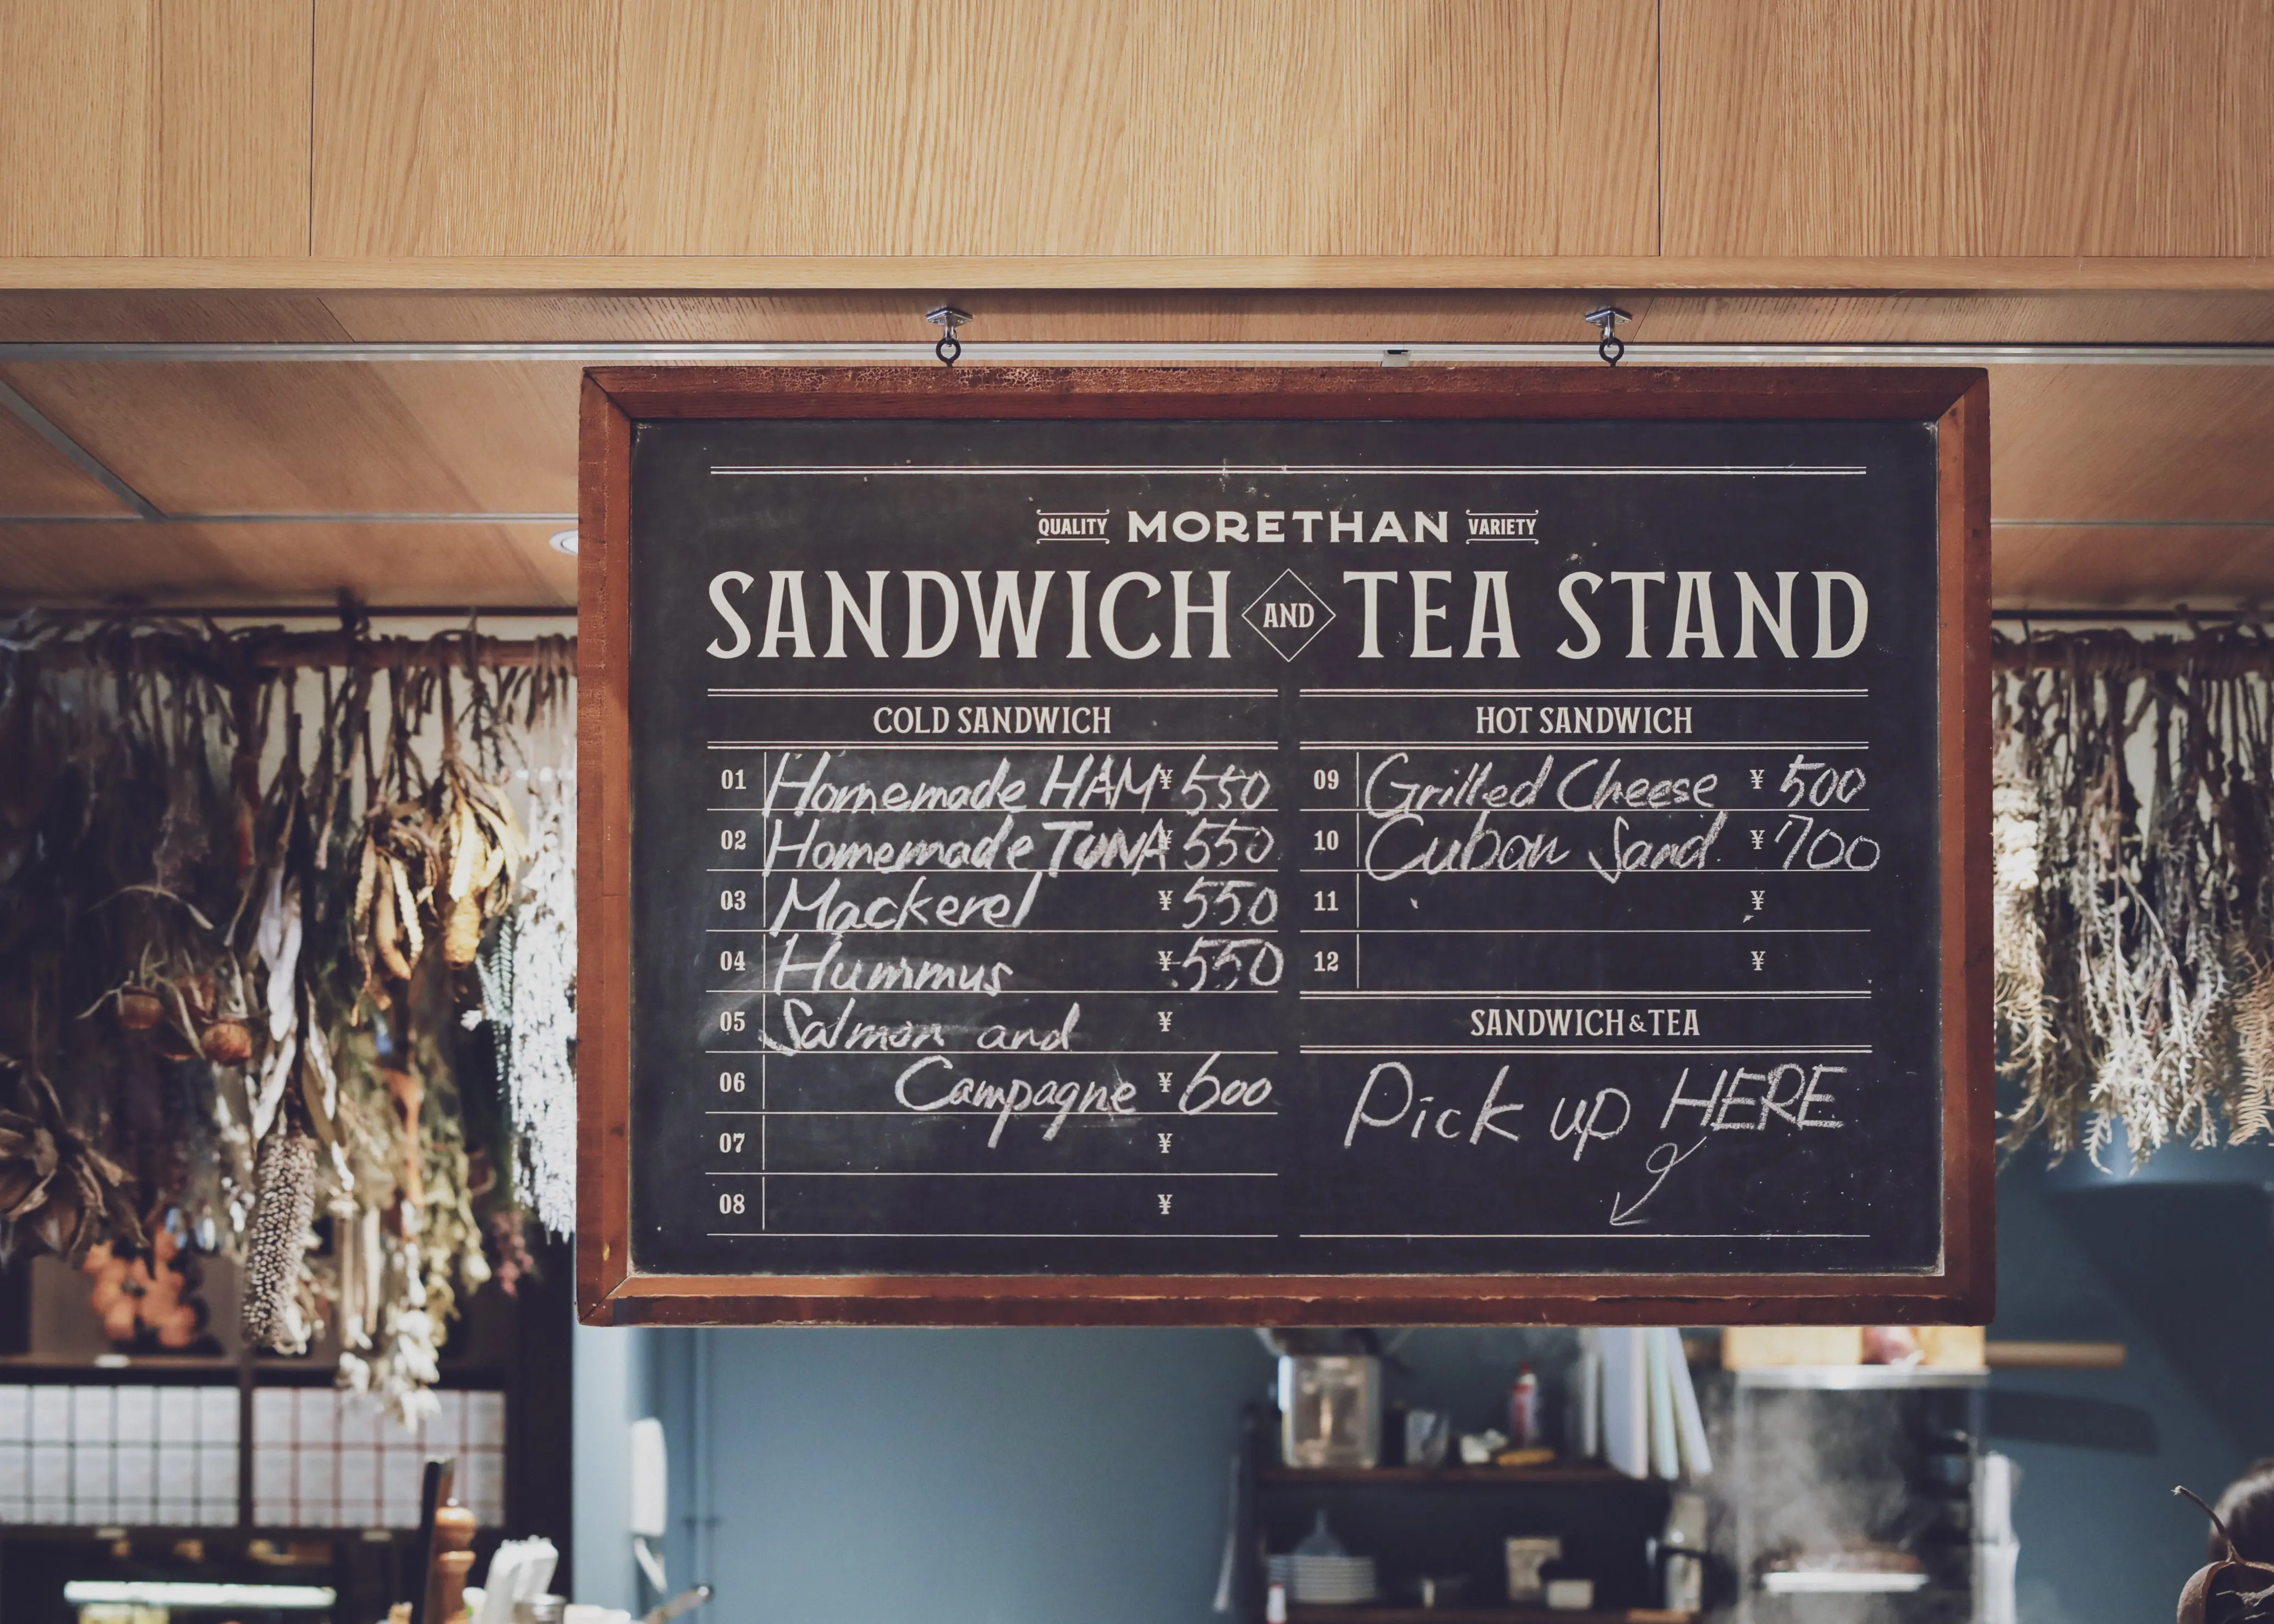 QUALITY MORETHAN VARIETY
SANDWICH AND TEA STAND
COLD SANDWICH
01 Homemade HAM ¥ 550
02 Homemade TUNA ¥ 550
03 Mackerel ¥ 550
04 Hummus ¥ 550
05 Salmon and ¥
06 Campagne ¥ 600
07 ¥
08 ¥
HOT SANDWICH
09 Grilled Cheese ¥ 500
10 Cuban Sand. ¥ 700
11 ¥
12 ¥
SANDWICH & TEA
Pick up HERE